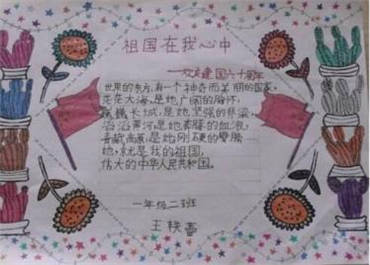 祖国在我心中
——欢庆建国六十周年
世界的东方,有一个神奇而美丽的国家,
茫茫大海,是她广阔的胸怀,
巍巍长城,是她坚强的脊梁,
滔滔黄河,是她沸腾的血液,
青藏高原,是她刚硬的臂膀,
她,就是我的祖国,
伟大的中华人民共和国。
一年级二班
王轶